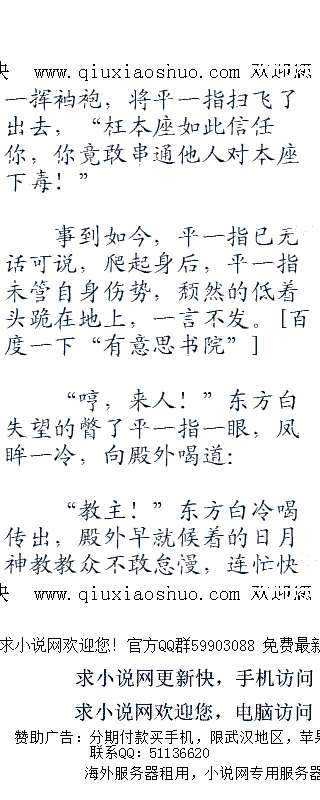 www.qiuxiaoshuo.com 欢迎您
一挥袖袍，将平一指扫飞了
出去，“枉本座如此信任
你，你竟敢串通他人对本座
下毒！”
事到如今，平一指已无
话可说，爬起身后，平一指
未管自身伤势，颓然的低着
头跪在地上，一言不发。[百
度一下“有意思书院”]
“哼，来人！”东方白
失望的瞥了平一指一眼，凤
眸一冷，向殿外喝道：
“教主！”东方白冷喝
传出，殿外早就候着的日月
神教教众不敢怠慢，连忙快
www.qiuxiaoshuo.com 欢迎您
求小说网欢迎您！官方QQ群59903088 免费最新
求小说网更新快，手机访问
求小说网欢迎您，电脑访问
赞助广告：分期付款买手机，限武汉地区，苹果
联系QQ：51136620
海外服务器租用，小说网专用服务器